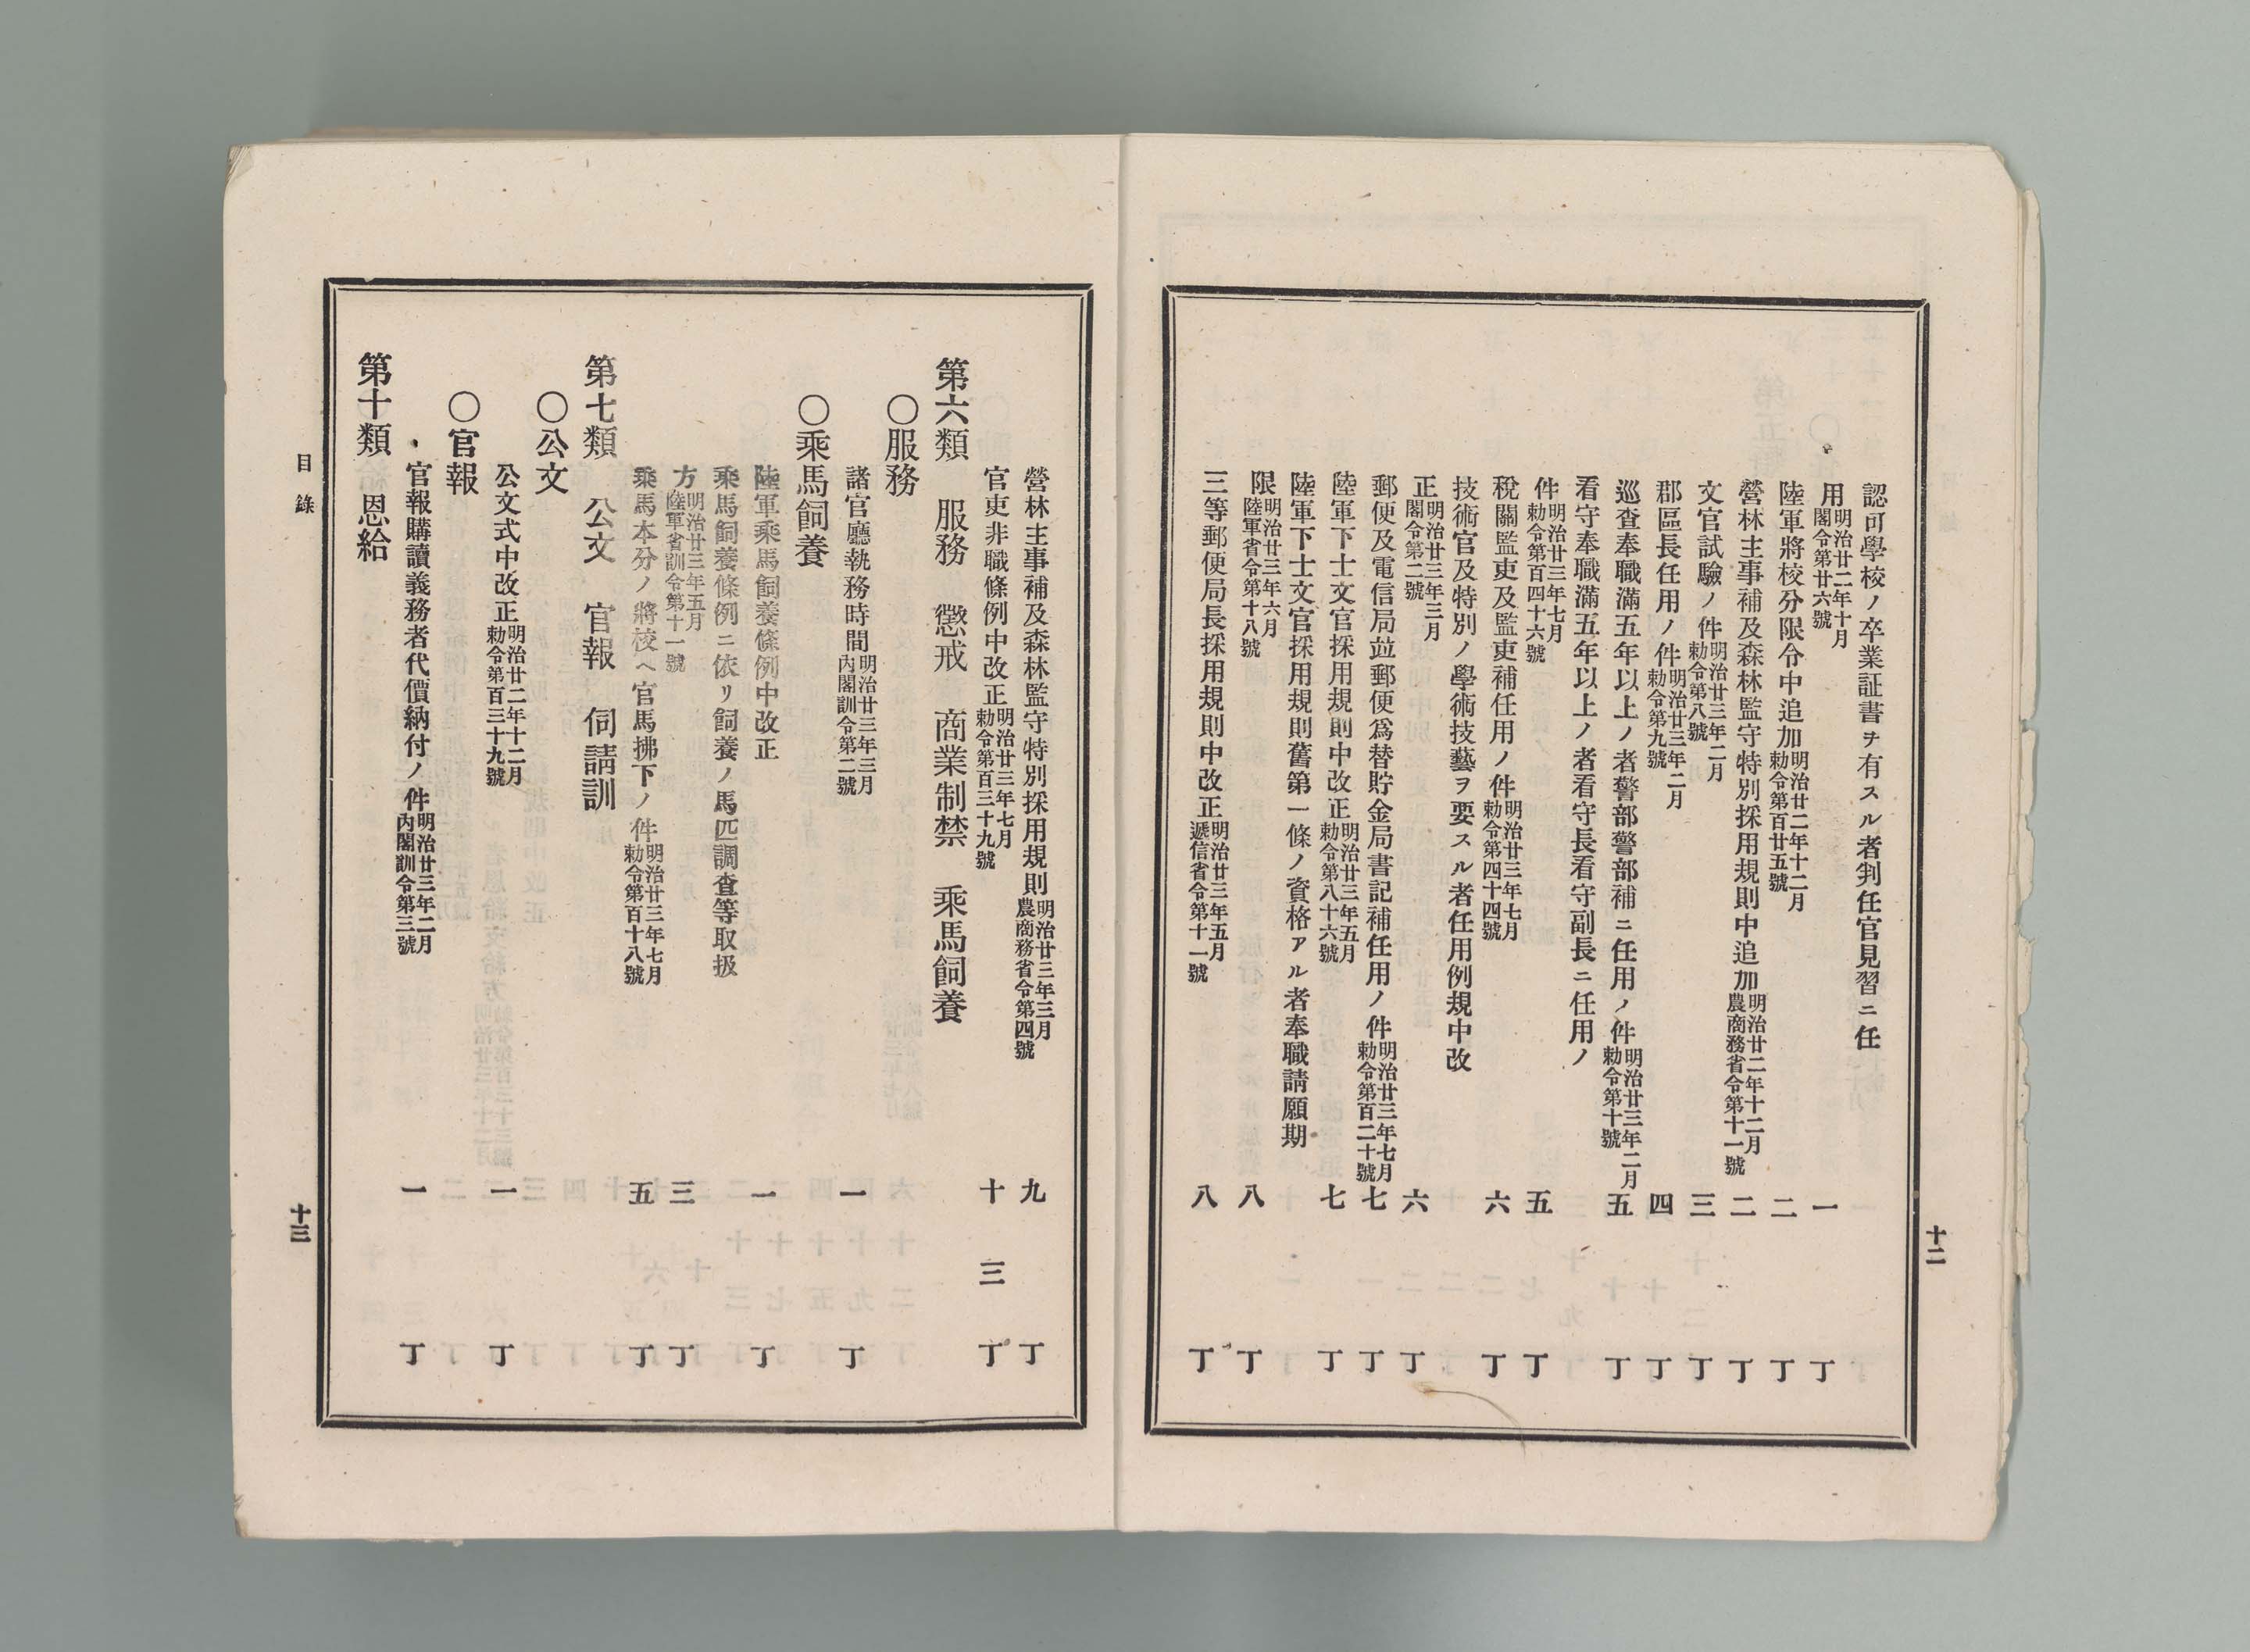 認可學校ノ卒業証書ヲ有スル者判任官見習ニ任
用明治廿二年十月閣令第廿六號 一丁
陸軍將校分限令中追加明治廿二年十二月勅令第百廿五號 二丁
營林主事補及森林監守特別採用規則中追加明治廿二年十二月農商務省令第十一號 二丁
文官試驗ノ件明治廿三年二月勅令第八號 三丁
郡區長任用ノ件明治廿三年二月勅令第九號 四丁
巡査奉職滿五年以上ノ者警部警部補ニ任用ノ件明治廿三年二月勅令第十號 五丁
看守奉職滿五年以上ノ者看守長看守副長ニ任用ノ
件明治廿三年七月勅令第百四十六號 五丁
稅關監吏及監吏補任用ノ件明治廿三年七月勅令第四十四號 六丁
技術官及特別ノ學術技藝ヲ要スル者任用例規中改
正明治廿三年三月閣令第二號 六丁
郵便及電信局竝郵便爲替貯金局書記補任用ノ件明治廿三年七月勅令第百二十號 七丁
陸軍下士文官採用規則中改正明治廿三年五月勅令第八十六號 七丁
陸軍下士文官採用規則舊第一條ノ資格アル者奉職請願期
限明治廿三年六月陸軍省令第十八號 八丁
三等郵便局長採用規則中改正明治廿三年五月遞信省令第十一號 八丁
十二
營林主事補及森林監守特別採用規則明治廿三年三月農商務省令第四號 九丁
官吏非職條例中改正明治廿三年七月勅令第百三十九號 十三丁
第六類 服務 懲戒 商業制禁 乘馬飼養
○服務
諸官廳執務時間明治廿三年三月內閣訓令第二號 一丁
○乘馬飼養
陸軍乘馬飼養條例中改正 一丁
乘馬飼養條例ニ依リ飼養ノ馬匹調査等取扱
方明治廿三年五月陸軍省訓令第十一號 三丁
乘馬本分ノ將校ヘ官馬拂下ノ件明治廿三年七月勅令第百十八號 五丁
第七類 公文 官報 伺請訓
○公文
公文式中改正明治廿二年十二月勅令第百三十九號 一丁
○官報
官報購讀義務者代價納付ノ件明治廿三年二月內閣訓令第三號 一丁
第十類 恩給
目錄
十三